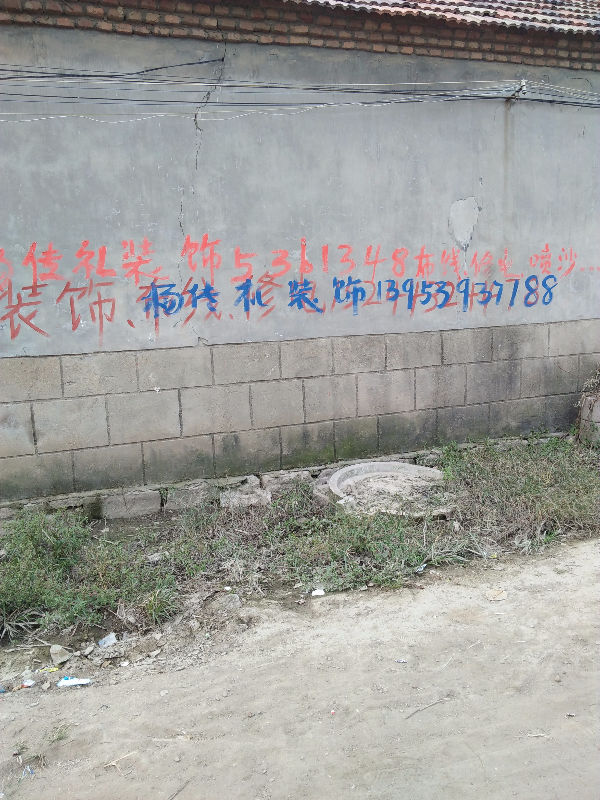 杨传礼装饰5361348布线.修电.喷沙...
装饰、布线、修
杨传礼装饰13953937788